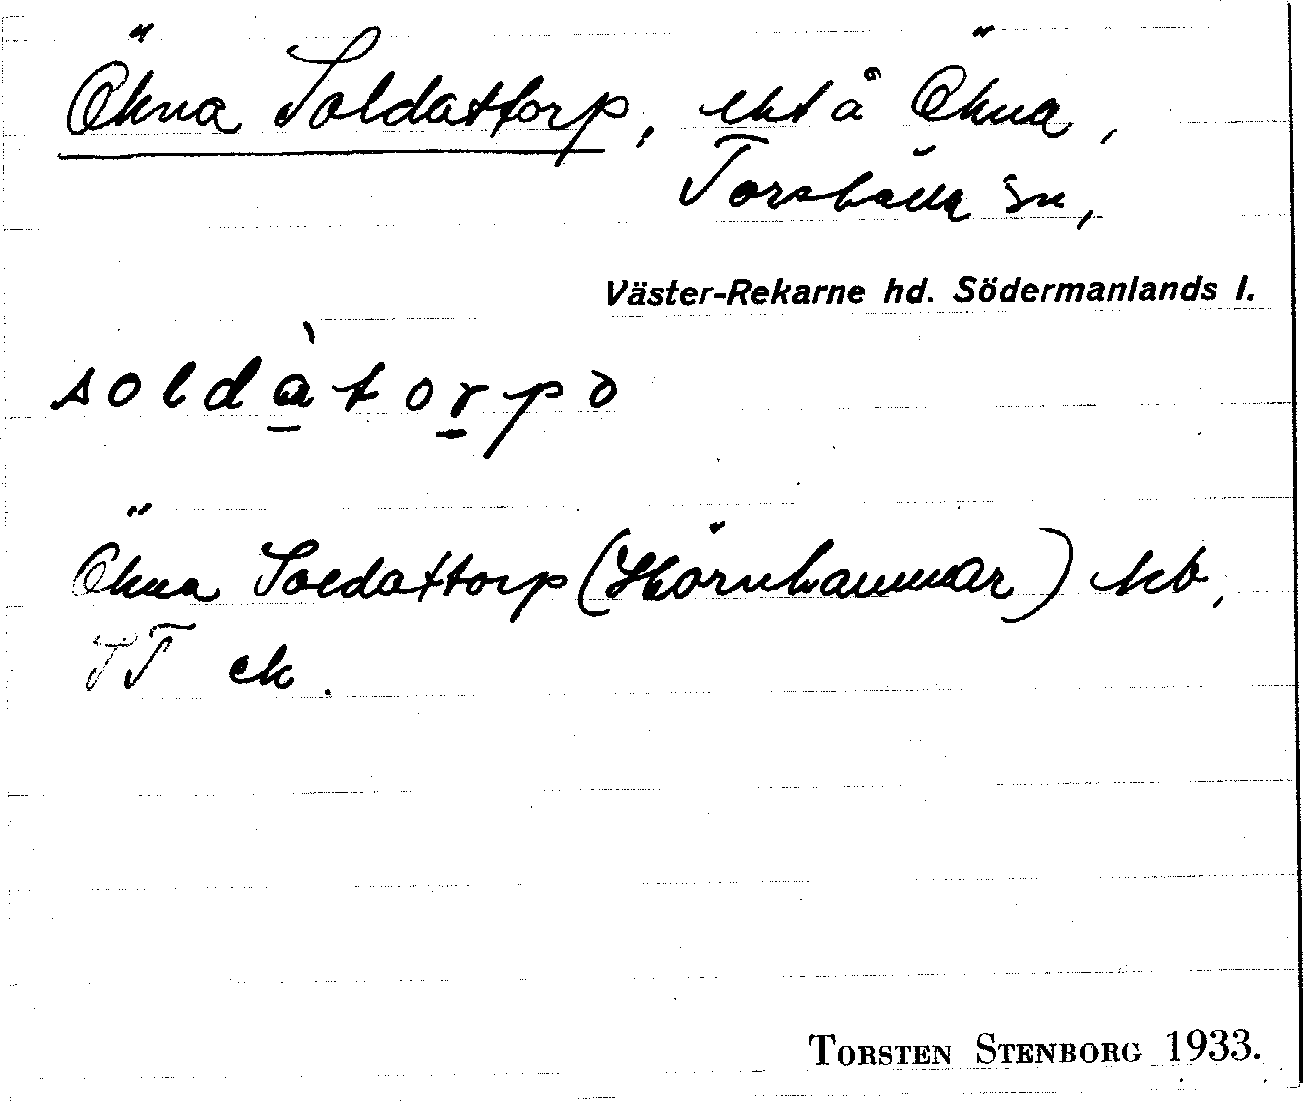 Ökna Soldattorp, ekt å Ökna,
Torshälla sn,
Väster-Rekarne hd. Södermanlands l.
soldàtorpə
Ökna Soldattorp (Hörnhammar) kb,
TT ek.
TORSTEN STENBORG 1933.